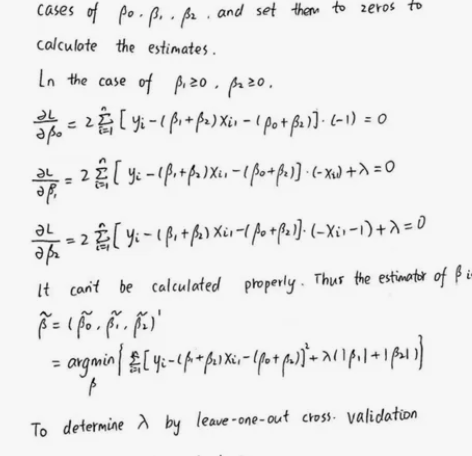 cases of β0, β1, β2, and set them to zeros to
calculate the estimates.
In the case of β1≥0, β2≥0.
∂L/∂β0 = 2 Σ_{i=1}^{n} [yi-(β1+β2)Xi1-(β0+β2)]·(-1) = 0
∂L/∂β1 = 2 Σ_{i=1}^{n} [yi-(β1+β2)Xi1-(β0+β2)]·(-Xi1)+λ=0
∂L/∂β2 = 2 Σ_{i=1}^{n} [yi-(β1+β2)Xi1-(β0+β2)]·(-Xi1-1)+λ=0
It can't be calculated properly. Thus the estimator of β i
β̃ = (β̃0, β̃1, β̃2)'
= argmin_β { Σ_{i=1}^{n} [yi-(β1+β2)Xi1-(β0+β2)]²+λ(|β1|+|β2|) }
To determine λ by leave-one-out cross-validation